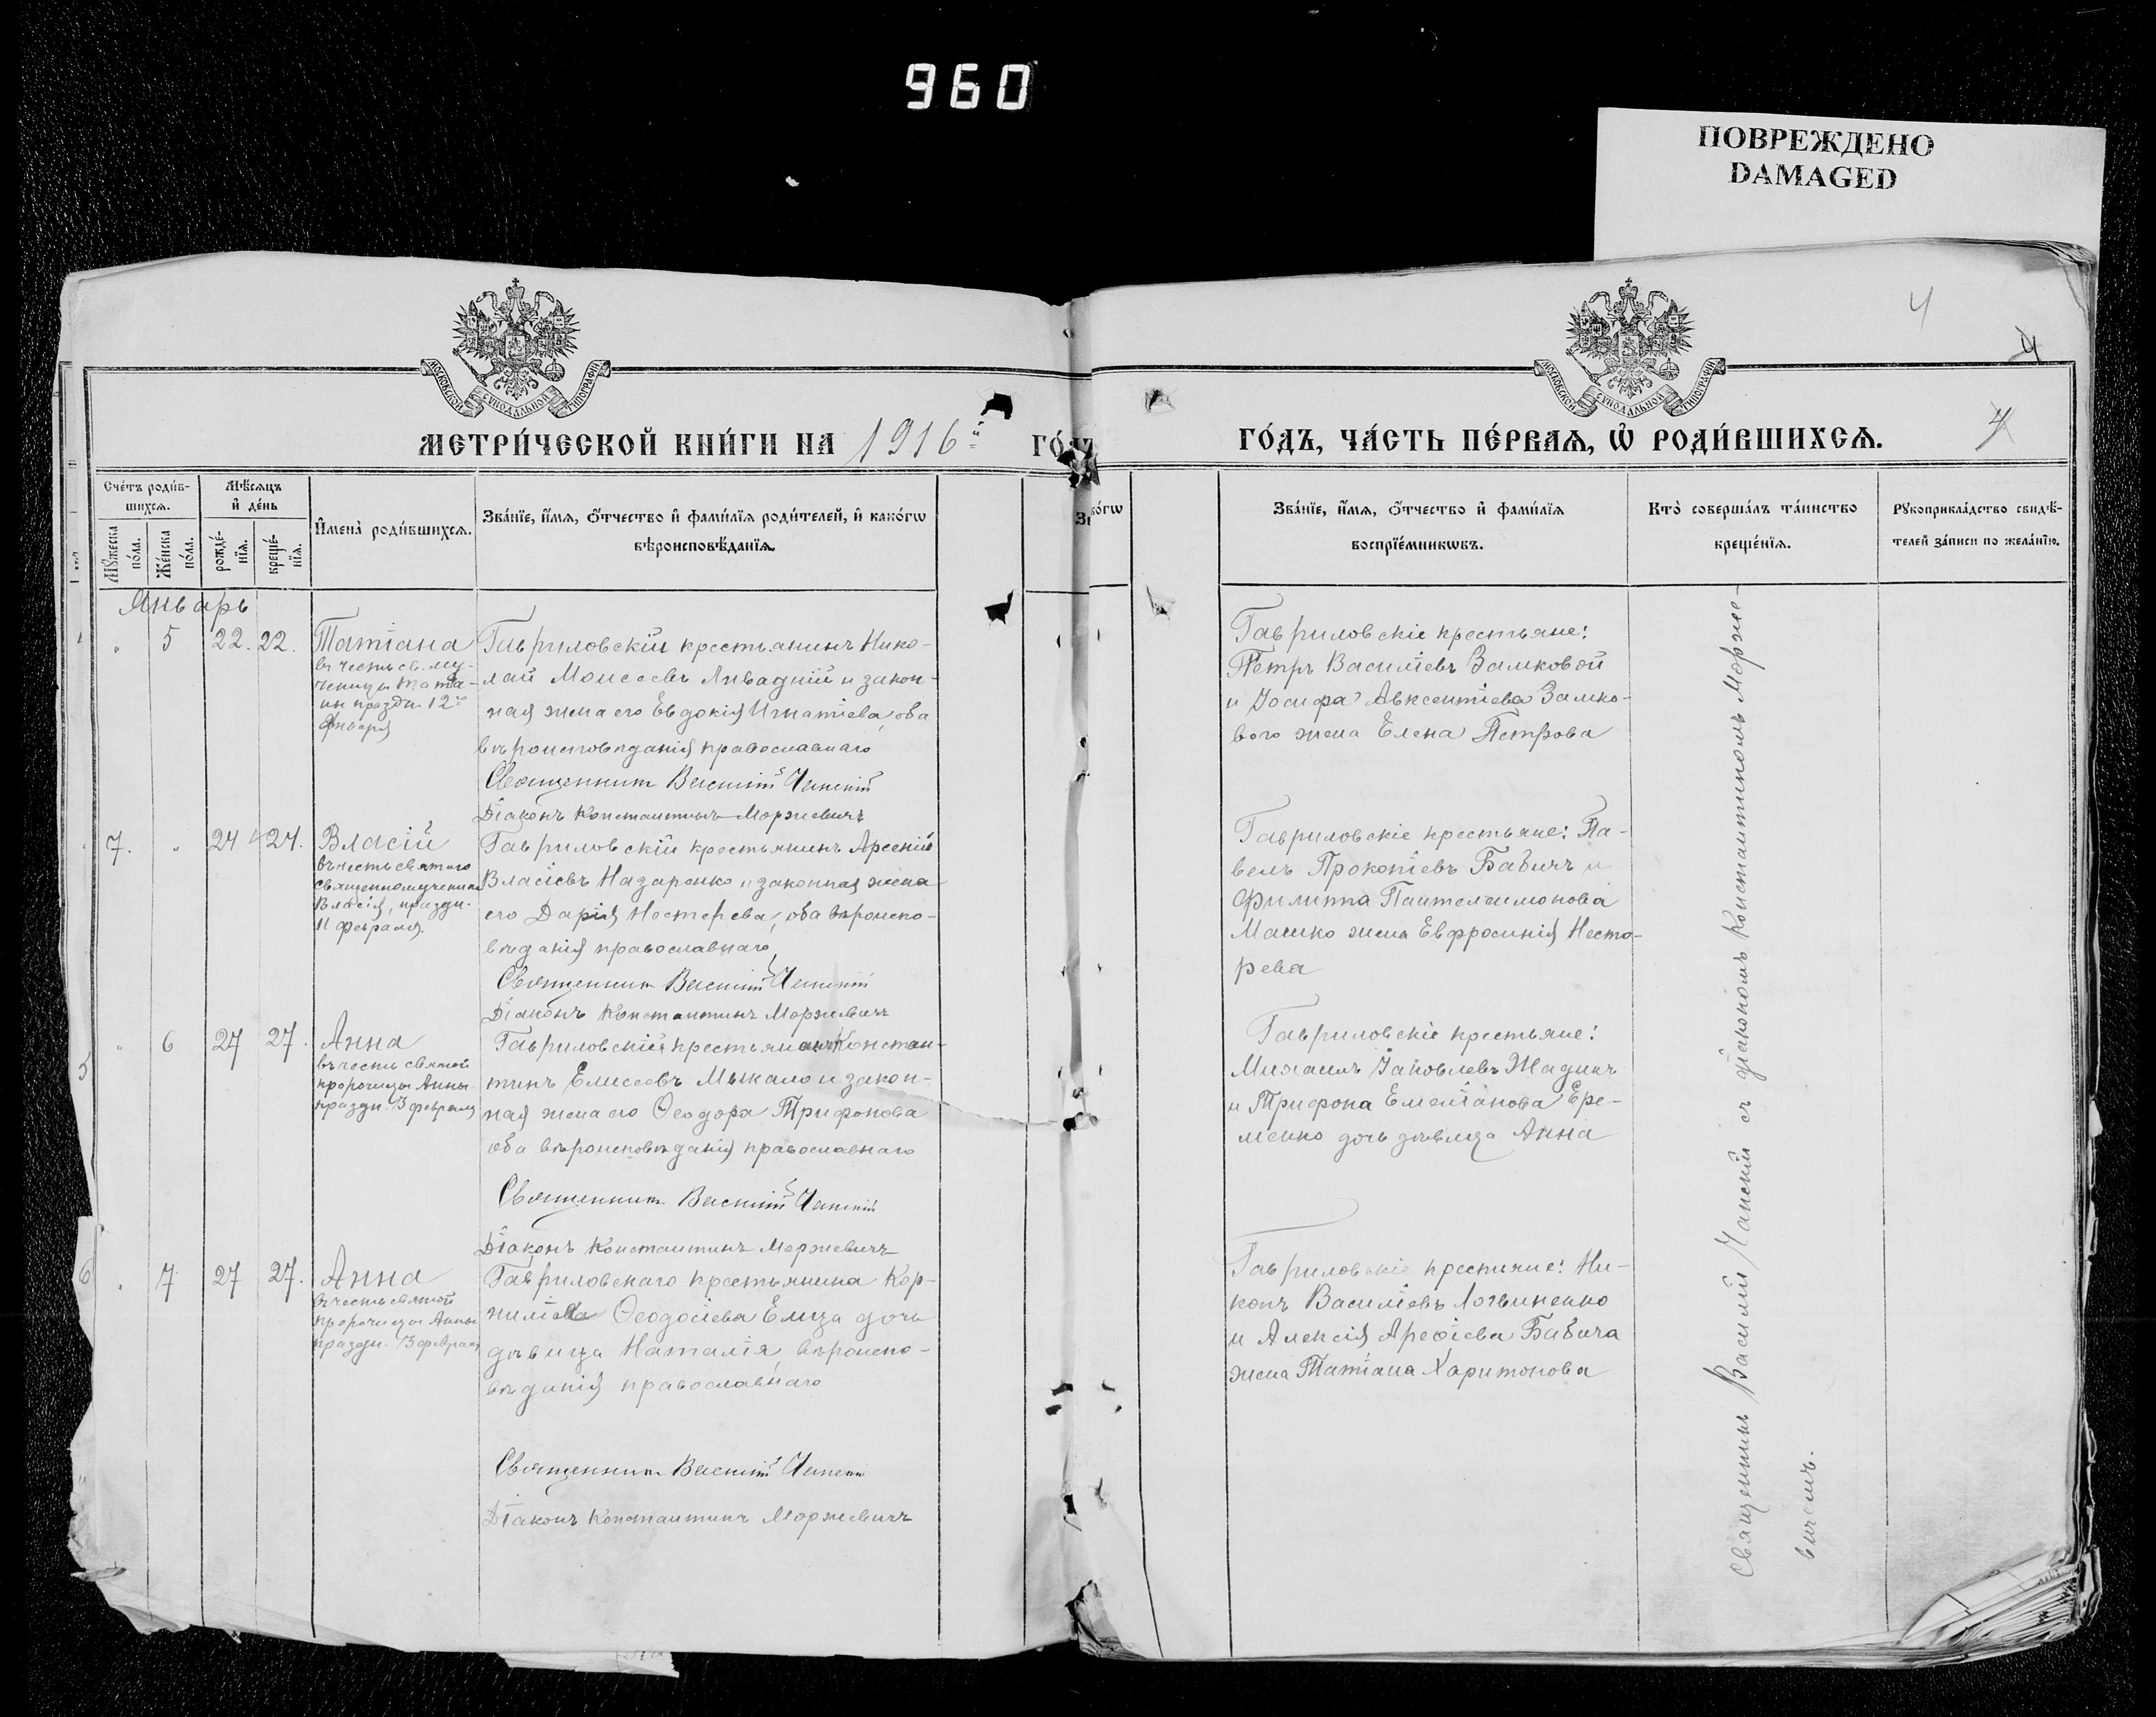 960
ПОВРЕЖДЕНО
DAMAGED
4
4
4
МОСКОВСКОЙ СѴНОДАЛЬНОЙ ТИПОГРАФІИ
МОСКОВСКОЙ СѴНОДАЛЬНОЙ ТИПОГРАФІИ
МЕТРИ́ЧЕСКОЙ КНИ́ГИ НА 1916й ГО́ДЪ
ГО́ДЪ, ЧА́СТЬ ПЕ́РВАѦ, Ѡ҆ РОДИ́ВШИХСѦ.
Сче́тъ роди́в-
шихсѧ.
Мꙋ́жеска по́ла.
Же́нска по́ла.
Мѣ́сѧцъ
и҆ де́нь
рожде́-
нїѧ.
креще́-
нїѧ.
И҆мена̀ роди́вшихсѧ.
Зва́нїе, и҆́мѧ, ѻ҆́тчество и҆ фами́лїѧ роди́телей, и҆ како́гѡ
вѣроисповѣ́данїѧ.
Зва́нїе, и҆́мѧ, ѻ҆́тчество и҆ фами́лїѧ
воспрїе́мникѡвъ.
Кто̀ соверша́лъ та́инство
креще́нїѧ.
Рꙋкоприкла́дство свидѣ́-
телей за́писи по жела́нїю.
Январь
" 5 22. 22.
Татіана
въ честь св. му-
ченицы Татіа-
ны праздн. 12го
Января
Гавриловскій крестьянинъ Нико-
лай Моисеевъ Ливадній и закон-
ная жена его Евдокія Игнатіева, оба
вѣроисповѣданія православнаго
Священникъ Василій Чапскій
Діаконъ Константинъ Моржевичъ
Гавриловскіе крестьяне:
Петръ Василіевъ Замковой
и Іосифа Авксентіева Замко-
вого жена Елена Петрова
7. " 24 24.
Власій
въ честь святого
священномученика
Власія, праздн.
11 февраля.
Гавриловскій крестьянинъ Арсеній
Власіевъ Назаренко и законная жена
его Дарія Нестерева, оба вѣроиспо-
вѣданія православнаго
Священникъ Василій Чапскій
Діаконъ Константинъ Моржевичъ
Гавриловскіе крестьяне: Па-
велъ Прокопіевъ Бабичъ и
Филиппа Пантелеимонова
Машко жена Евфросинія Несто-
рева
5
" 6 27 27.
Анна
въ честь святой
пророчицы Анны
праздн. 3 февраля
Гавриловскій крестьянинъ Констан-
тинъ Елисеевъ Мыкало и закон-
ная жена его Ѳеодора Трифонова
оба вѣроисповѣданія православнаго
Священникъ Василій Чапскій
Діаконъ Константинъ Моржевичъ
Гавриловскіе крестьяне:
Михаилъ Іаковлевъ Жадинъ
и Трифона Емеліанова Ере-
менко дочь дѣвица Анна
6
" 7 27 27.
Анна
въ честь святой
пророчицы Анны
праздн. 3 февраля
Гавриловскаго крестьянина Кор-
нилія Ѳеодосіева Елца дочь
дѣвица Наталія, вѣроиспо-
вѣданія православнаго
Священникъ Василій Чапскій
Діаконъ Константинъ Моржевичъ
Гавриловскіе крестьяне: Ни-
конъ Василіевъ Логвиненко
и Алексія Арефіева Бабича
жена Татіана Харитонова
Священникъ Василій Чапскій съ діакономъ Константиномъ Морже-
вичемъ.